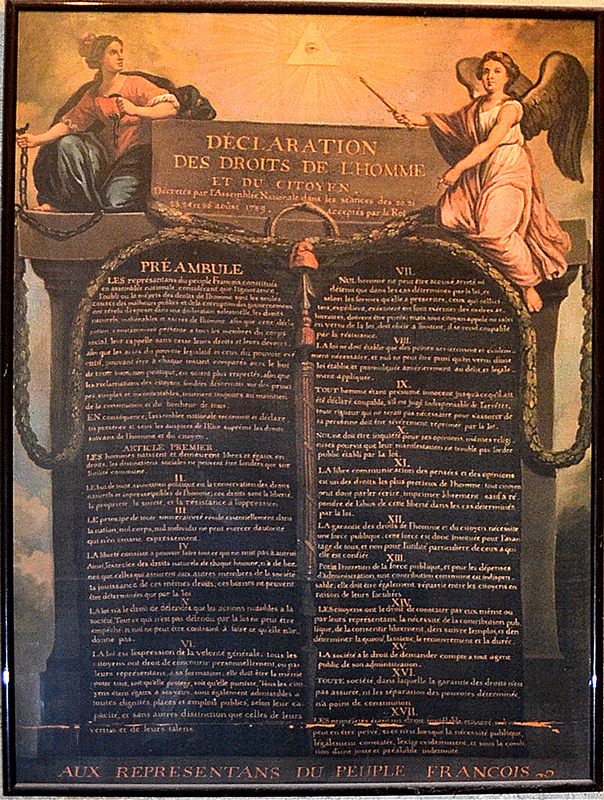 DÉCLARATION
DES DROITS DE L'HOMME
ET DU CITOYEN,
Décrétés par l'Assemblée Nationale dans les séances des 20. 21
23. 24 et 26 août 1789, acceptés par le Roi
PRÉAMBULE
LES représentans du peuple François, constitués
en assemblée nationale, considérant que l'ignorance,
l'oubli ou le mépris des droits de l'homme sont les seules
causes des malheurs publics et de la corruption des gouvernemens
ont résolu d'exposer dans une déclaration solemnelle, les droits
naturels, inaliénables et sacrés de l'homme; afin que cette décla
ration, constamment présente a tous les membres du corps
social, leur rappelle sans cesse leurs droits et leurs devoirs;
afin que les actes du pouvoir législatif et ceux du pouvoir exé
cutif, pouvant être à chaque instant comparés avec le but
de toute institution politique, en soient plus respectés; afin que
les réclamations des citoyens, fondées désormais sur des princi
pes simples et incontestables, tournent toujours au maintien
de la constitution et du bonheur de tous.
EN conséquence, l'assemblée nationale reconnoit et déclare
en présence et sous les auspices de l'Etre suprême les droits
suivans de l'homme et du citoyen.
ARTICLE PREMIER.
LES hommes naissent et demeurent libres et égaux en
droits, les distinctions sociales ne peuvent être fondées que sur
l'utilité commune.
II.
LE but de toute association politique est la conservation des droits
naturels et imprescriptibles de l'homme; ces droits sont la liberté,
la propriété, la sureté, et la résistance à l'oppression.
III.
LE principe de toute souveraineté réside essentiellement dans
la nation, nul corps, nul individu ne peut exercer d'autorité
qui n'en émane expressement.
IV.
LA liberté consiste a pouvoir faire tout ce qui ne nuit pas à autrui
Ainsi, l'exercice des droits naturels de chaque homme, n'a de bor
nes que celles qui assurent aux autres membres de la société
la jouissance de ces mêmes droits; ces bornes ne peuvent
être déterminées que par la loi
V.
LA loi n'a le droit de défendre que les actions nuisibles à la
société. Tout ce qui n'est pas défendu par la loi ne peut être
empêché, et nul ne peut être contraint à faire ce qu'elle n'or
donne pas.
VI.
LA loi est l'expression de la volonté générale; tous les
citoyens ont droit de concourir personnellement, ou par
leurs représentans, à sa formation; elle doit être la même
pour tous, soit qu'elle protege, soit qu'elle punisse. Tous les cito
yens étant égaux à ses yeux, sont également admissibles à
toutes dignités, places et emplois publics, selon leur ca
pacité, et sans autres distinction que celles de leurs
vertus et de leurs talens.
VII.
NUL homme ne peut être accusé, arrêté ni
détenu que dans les cas déterminés par la loi, et
selon les formes qu'elle a prescrites, ceux qui sollici
tent, expédient, exécutent ou font exécuter des ordres ar
bitraires, doivent être punis; mais tout citoyen appelé ou saisi
en vertu de la loi, doit obéir a l'instant, il se rend coupable
par la résistance.
VIII.
LA loi ne doit établir que des peines strictement et évidem
ment nécessaire, et nul ne peut être puni qu'en vertu d'une
loi établie et promulguée antérieurement au délit, et légale
ment appliquée.
IX.
TOUT homme étant présumé innocent jusqu'à ce qu'il ait
été déclaré coupable, s'il est jugé indispensable de l'arrêter,
toute rigueur qui ne serait pas nécessaire pour s'assurer de
sa personne doit être sévèrement réprimée par la loi.
X.
NUL ne doit être inquiété pour ses opinions, mêmes religi
euses pourvu que leur manifestation ne trouble pas l'ordre
public établi par la loi.
XI.
LA libre communication des pensées et des opinions
est un des droits les plus precieux de l'homme; tout citoyen
peut donc parler écrire, imprimer librement: sauf à ré
pondre de l'abus de cette liberté dans les cas déterminés
par la loi.
XII.
LA garantie des droits de l'homme et du citoyen nécessite
une force publique: cette force est donc instituée pour l'avan
tage de tous, et non pour l'utilité particuliere de ceux a qui
elle est confiée.
XIII.
POUR l'entretien de la force publique, et pour les dépenses
d'administration, une contribution commune est indispen
sable; elle doit être également répartie entre les citoyens en
raison de leurs facultées.
XIV.
LES citoyens ont le droit de constater par eux même ou
par leurs représentans, la nécessité de la contribution pub
lique, de la consentir librement, d'en suivre l'emploi, et d'en
déterminer la quotité, l'assiette, le recouvrement et la durée.
XV.
LA société a le droit de demander compte a tout agent
public de son administration.
XVI.
TOUTE société, dans laquelle la garantie des droits n'est
pas assurée, ni la séparation des pouvoirs déterminée,
n'a point de constitution.
XVII.
LES propriétés étant un droit inviolable et sacré, nul ne
peut en être privé, si ce n'est lorsque la nécessité publique,
légalement constatée, l'exige évidemment, et sous la condi
tion d'une juste et préalable indemnité.
AUX REPRESENTANS DU PEUPLE FRANCOIS